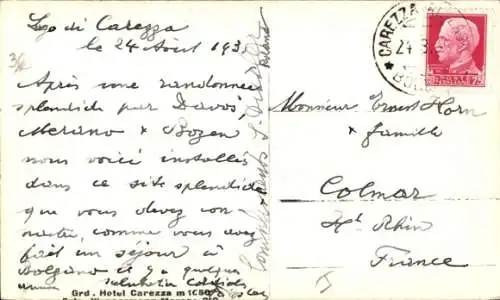 Lago di Carezza
le 24 Août 193
Après une randonnée
splendide par Davos,
Merano & Bozen
nous voici installés
dans ce site splendide
que vous devez con-
naître, comme vous avez
fait un séjour à
Bolzano il y a quelques
Grd. Hotel Carezza m 16
CAREZZA
24.8
BO
Monsieur Ernest Horn
& famille
Colmar
Ht Rhin
France